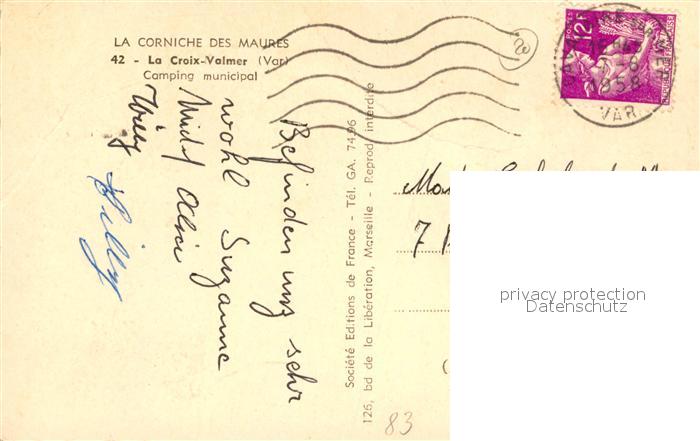 LA CORNICHE DES MAURES
42 - La Croix-Valmer (Var)
Camping municipal
Befinden uns sehr
wohl Suzanne
Michel Aline
Willy
Willy
Société Editions de France - Tél. GA. 74-96
126, bd de la Libération, Marseille - Reprod. interdite
12F
POSTES
1958
VAR
7
privacy protection
Datenschutz
83